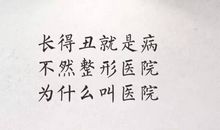 长得丑就是病
不然整形医院
为什么叫医院